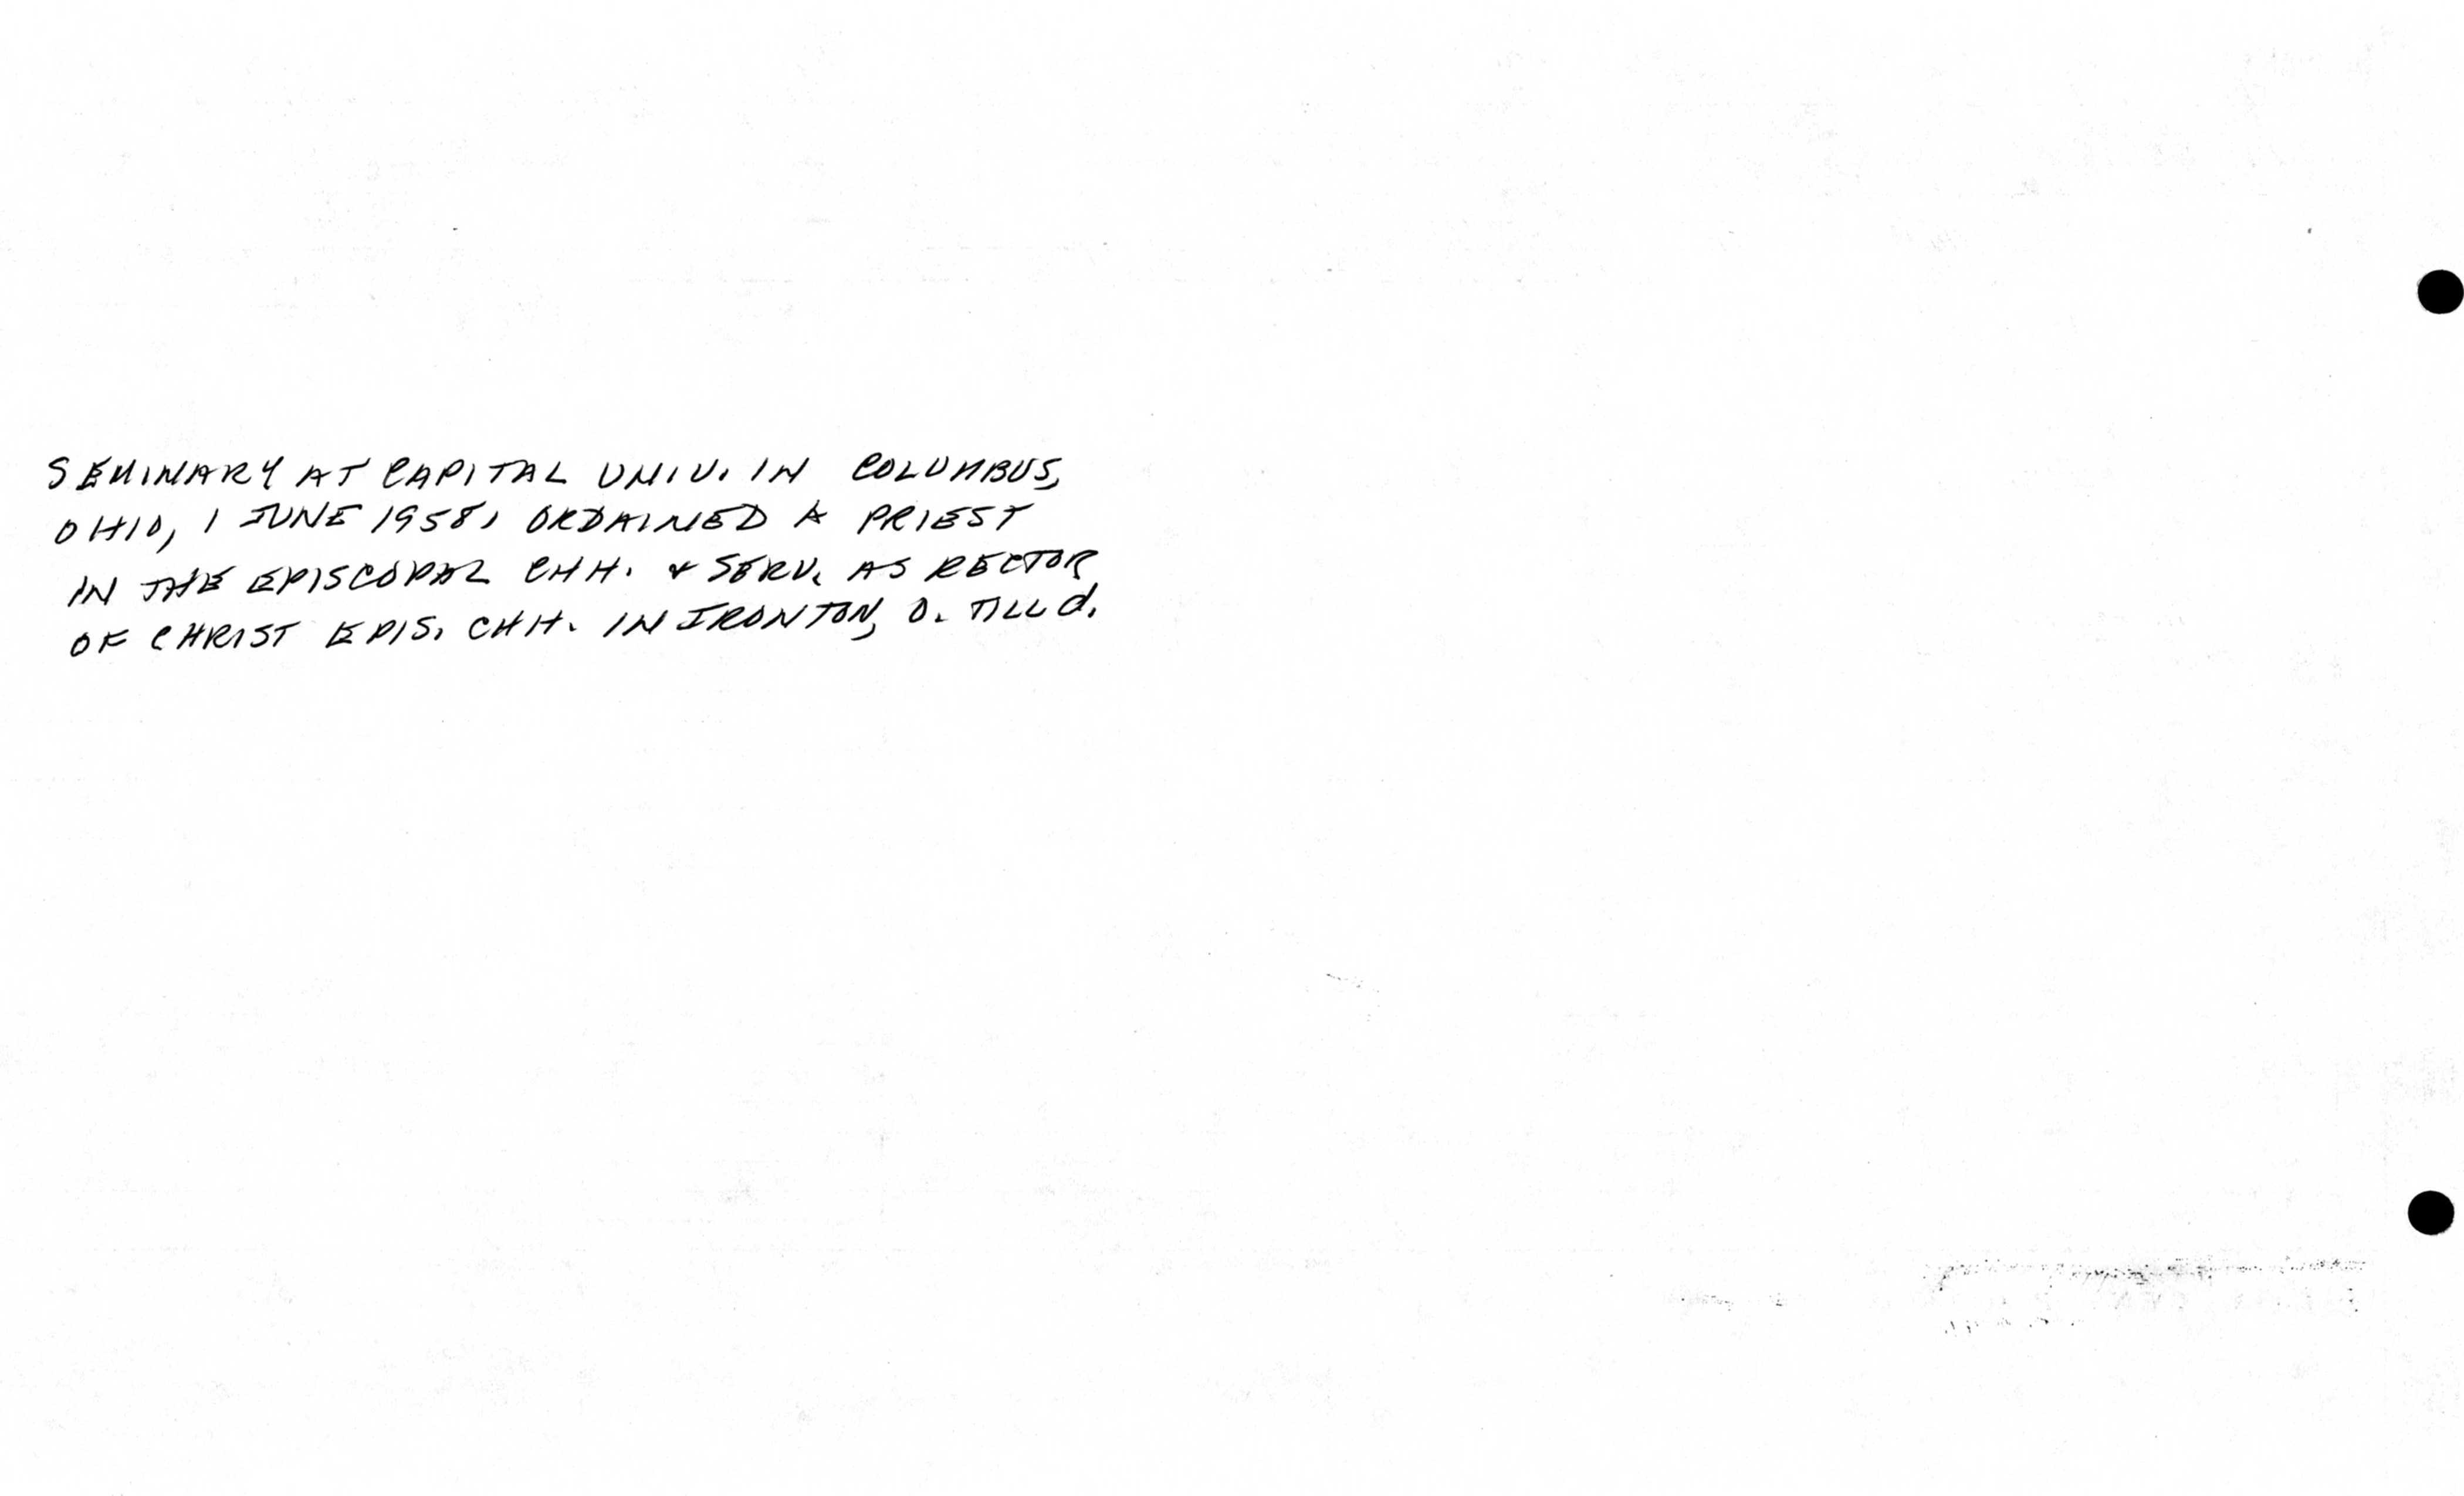 SEMINARY AT CAPITAL UNIV. IN COLUMBUS,
OHIO, 1 JUNE 1958, ORDAINED A PRIEST
IN THE EPISCOPAL CHH. & SERV. AS RECTOR
OF CHRIST EPIS. CHH. IN IRONTON, O. TILL d.